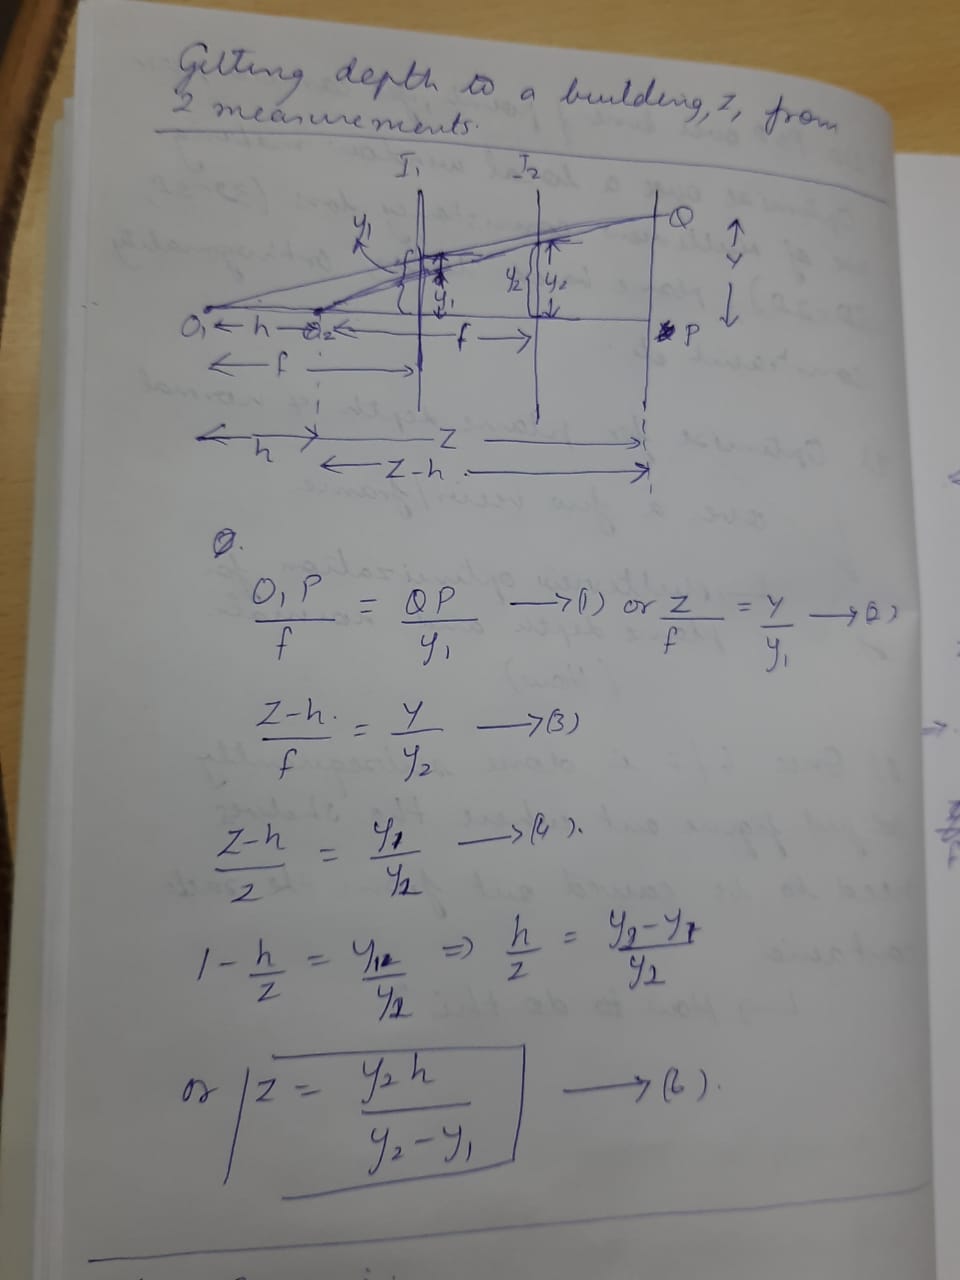 Getting depth to a building, Z, from
2 measurements.
I₁ I₂
y₁ Q
y₂ y₂ Y
y₁
O₁ h O₂ f P
f
h Z
Z-h
O₁P/f = QP/y₁ →(1) or Z/f = Y/y₁ →(2)
Z-h/f = Y/y₂ →(3)
Z-h/Z = y₁/y₂ →(4).
1 - h/Z = y₁/y₂ ⇒ h/Z = y₂-y₁/y₂
or Z = y₂h/y₂-y₁ →(6).